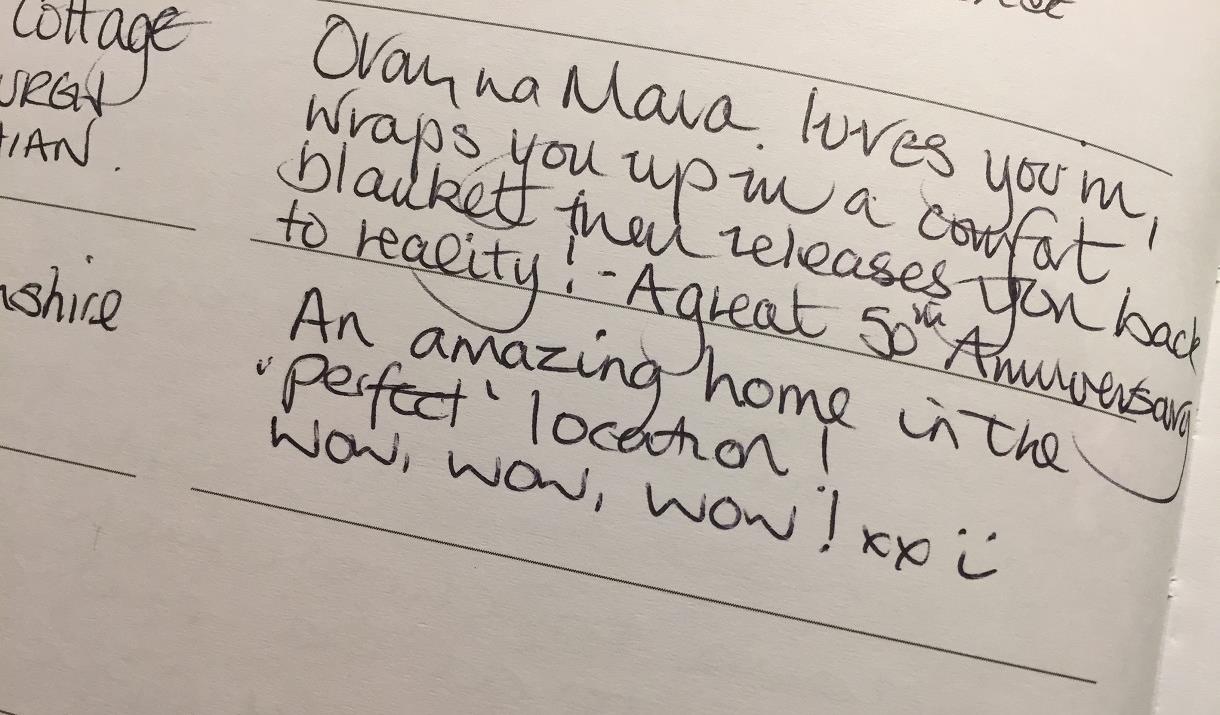 Cottage
URGH
HIAN.
Oran na Mara lures you in,
wraps you up in a 'comfort'
blanket then releases you back
to reality! - A great 50th Anniversary
nshire
An amazing home in the
"perfect" location!
Wow, wow, wow! xx :)